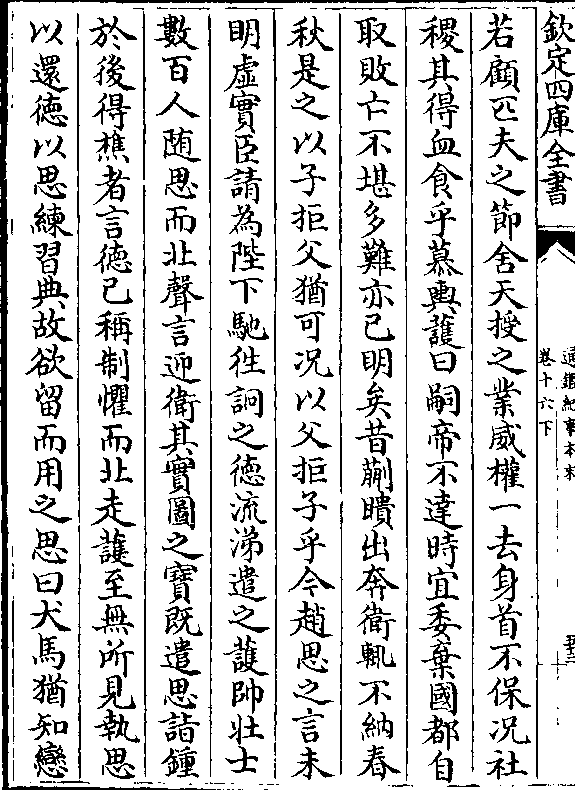 欽定四庫全書
通鑑紀事本末
卷十六下
若顧匹夫之節舍天授之業威權一去身首不保况社
稷其得血食乎慕輿䕶曰嗣帝不達時宜委棄國都自
取敗亡不堪多難亦已明矣昔蒯聵出奔衛輒不納春
秋是之以子拒父猶可况以父拒子乎今趙思之言未
明虛實臣請為陛下馳往詗之徳流涕遣之䕶帥壯士
數百人随思而北聲言迎衛其實圖之寶既遣思詣鍾
於後得樵者言徳已稱制懼而北走䕶至無所見執思
以還徳以思練習典故欲留而用之思曰犬馬猶知戀